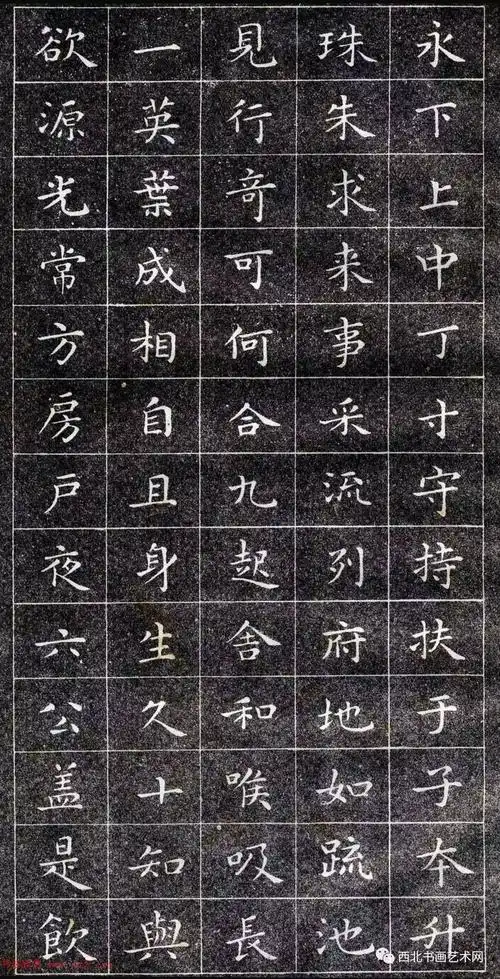 永下上中丁寸守持扶于子本升
珠朱求来事采流列府地如疏池
見行奇可何合九起舍和唉吸長
一英葉成相自且身生久十知與
欲源光常方房戸夜六公盖是飲
西北书画艺术网